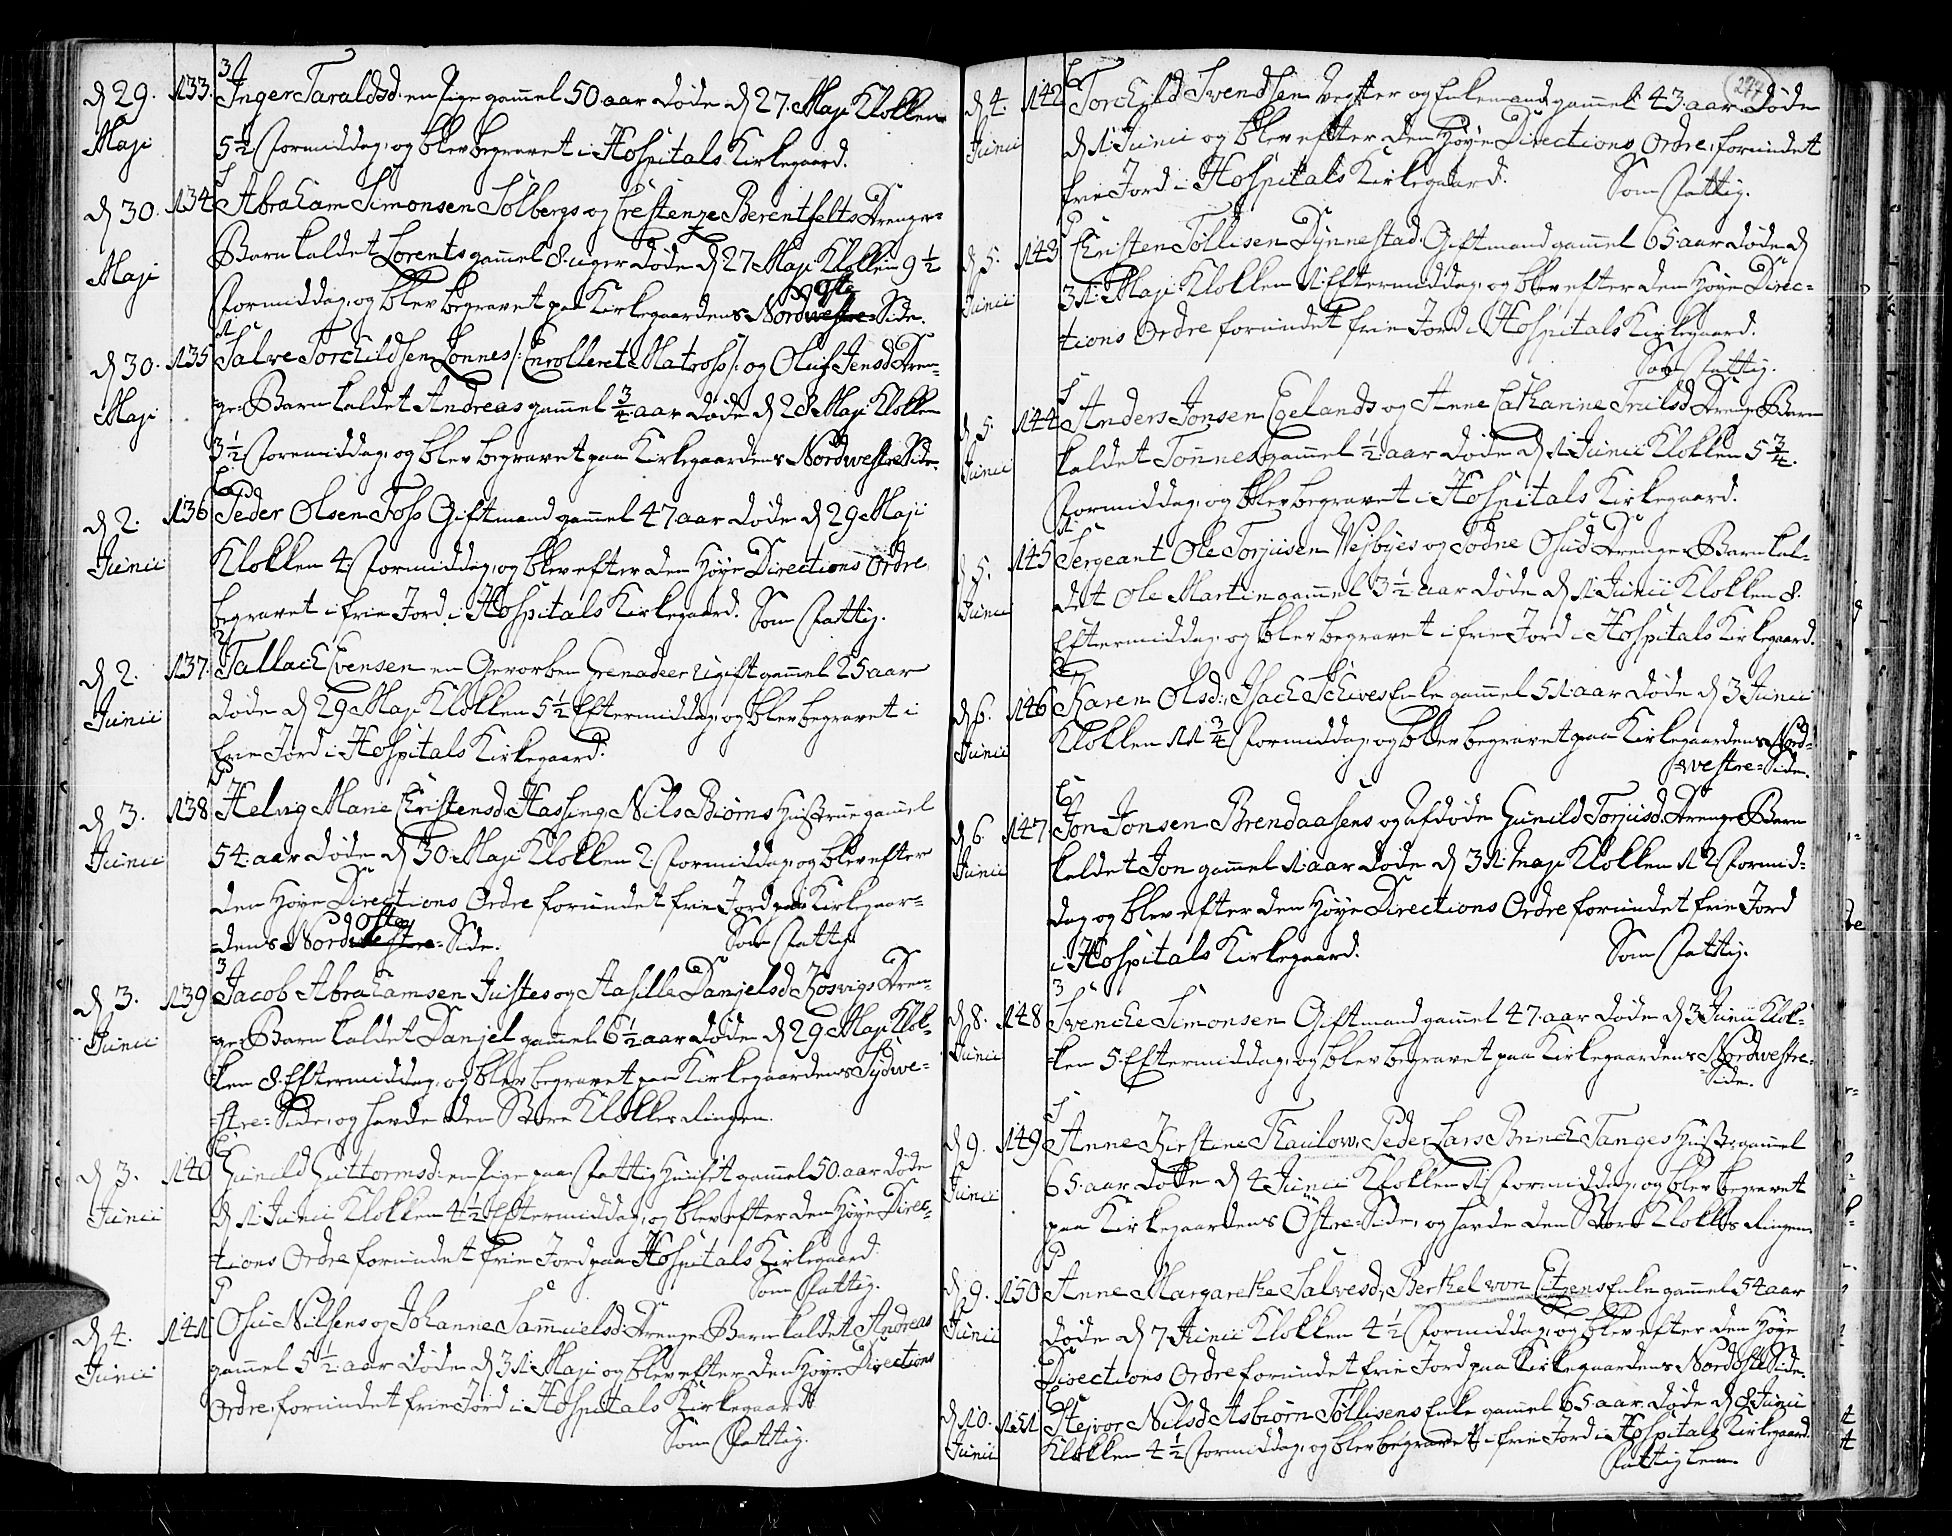 d 29. 133. Inger Taraldsd: en Pige gammel 50 aar døde d 27. Maji Klokken
Maji 5 1/2 Formiddag, og blev begravet i Hospitals Kirkegaard.
d 30. 134. Abraham Simonsen Solbergs og Crestenze Berentsens Drenge-
Barn kaldet Lorents gammel 8. uger døde d 27 Maji Klokken 9 1/2
Maji Formiddag, og blev begravet paa Kirkegaardens Nordoste Side.
d 30. 135 Salve Torchildsen Lonnes /: Enrolleret Matross :/ og Oluf Jensd: Dren-
Maji ge-Barn kaldet Andreas gammel 3/4 aar døde d 28 Maji Klokken
3 1/2 Formiddag, og blev begravet paa Kirkegaardens Nordwestre Side.
d 2. 136 Peder Olsen Foss Giftmand gammel 47 aar døde d 29 Maji
Junii Klokken 4 Formiddag, og blev efter den Høye Directions Ordre
begravet i frie Jord i Hospitals Kirkegaard. Som Fattig.
d 2. 137. Tallach Evensen en Gevorben Grenadeer ugift gammel 25 aar
Junii døde d 29 Maji Klokken 5 1/2 Eftermiddag, og blev begravet i
frie Jord i Hospitals Kirkegaard.
d 3. 138 Helvig Marie Christensd: Hassing Nils Biørns Hustrue gammel
Junii 54 aar døde d 30 Maji Klokken 2. Formiddag, og blev efter
den Høye Directions Ordre forundet frie Jord paa Kirkegaar-
dens Nordoster Side. Som Fattig.
d 3. 139 Jacob Abrahamsen Justes og Aasille Danjelsd: Kosvigs Dren-
Junii ge-Barn kaldet Danjel gammel 6 1/2 aar døde d 29 Maji Klok-
ken 8. Eftermiddag, og blev begravet paa Kirkegaardens Sydwe-
stre-Side, og havde den Store Klokkes Ringen.
d 3. 140 Gunild Guttormsd: en Pige paa Fattig Huuset gammel 50. aar døde
Junii d 1 Junii Klokken 4 1/2 Eftermiddag, og blev efter den Høye Direc-
tions Ordre forundet frie Jord paa Hospitals Kirkegaard.
Som Fattig.
d 4. 141 Osu Nilsens og Johanne Sammuelsd: Drenge Barn kaldet Andreas
Junii gammel 5 1/2 aar døde d 31 Maji og blev efter den Høye Directions
Ordre, forundet frie Jord i Hospitals Kirkegaard
Som Fattig.
247
d 4. 142 Torchild Svendsen Vegter og Enkemand gammel 43. aar døde
Junii d 1 Junii og blev efter den Høye Directions Ordre, forundet
frie Jord i Hospitals Kirkegaard. Som Fattig.
d 5. 143 Christen Tollisen Dynnestad Giftmand gammel 65 aar døde d
Junii 31 Maji Klokken 1 Eftermiddag, og blev efter den Høye Direc-
tions Ordre forundet frie Jord i Hospitals Kirkegaard.
Som Fattig.
d 5. 144 Anders Jonsen Egelands og Anne Catharine Trulsd: Drenge Barn
Junii kaldet Tonnes gammel 1/2 aar døde d 1 Junii Klokken 5 3/4.
Formiddag, og blev begravet i Hospitals Kirkegaard.
d 5. 145 Sergeant Ole Torjusen Wejbyes og Todne Osud: Drenge Barn kal-
Junii det Ole Martin gammel 3 1/2 aar døde d 1 Junii Klokken 8.
Eftermiddag, og blev begravet i frie Jord i Hospitals Kirkegaard.
d 6. 146 Karen Olsd: Isach Schives Enke gammel 51 aar døde d 3 Junii
Junii Klokken 11 3/4 Formiddag, og blev begravet paa Kirkegaardens Nord-
westre-Side.
d 6 147 Jon Jonsen Brendaasens og Afdøde Gunild Torjusd: Drenge Barn
Junii kaldet Jon gammel 1 aar døde d 31 Maji Klokken 12 Formid-
dag, og blev efter den Høye Directions Ordre forundet frie Jord
i Hospitals Kirkegaard. Som Fattig.
d 8. 148 Svenche Simonsen Giftmand gammel 47 aar døde d 3 Junii Klok-
Junii ken 5 Eftermiddag, og blev begravet paa Kirkegaardens Nordwestre-
Side.
d 9. 149 Anne Kirstine Thaulow, Peder Lars Brinch Tanges Hustr: gammel
Junii 65 aar døde d 4 Junii Klokken 11 Formiddag, og blev begravet
paa Kirkegaardens Östre-Side, og havde den Store Klokkes Ringen.
d 9. 150 Anne Margarethe Salvesd: Berthel von Eitzens Enke gammel 54 aar
Junii døde d 7 Junii Klokken 4 1/2 Formiddag, og blev efter den Høye
Directions Ordre forundet frie Jord paa Kirkegaardens Nordoste Side.
d 10. 151 Stejvor Nilsd: Asbiørn Tollisens Enke gammel 65 aar. døde d 8 Junii
Junii Klokken 4 1/2 Formiddag, og blev begravet i frie Jord i Hospitals Kirkegaard.
Fattig Lem.